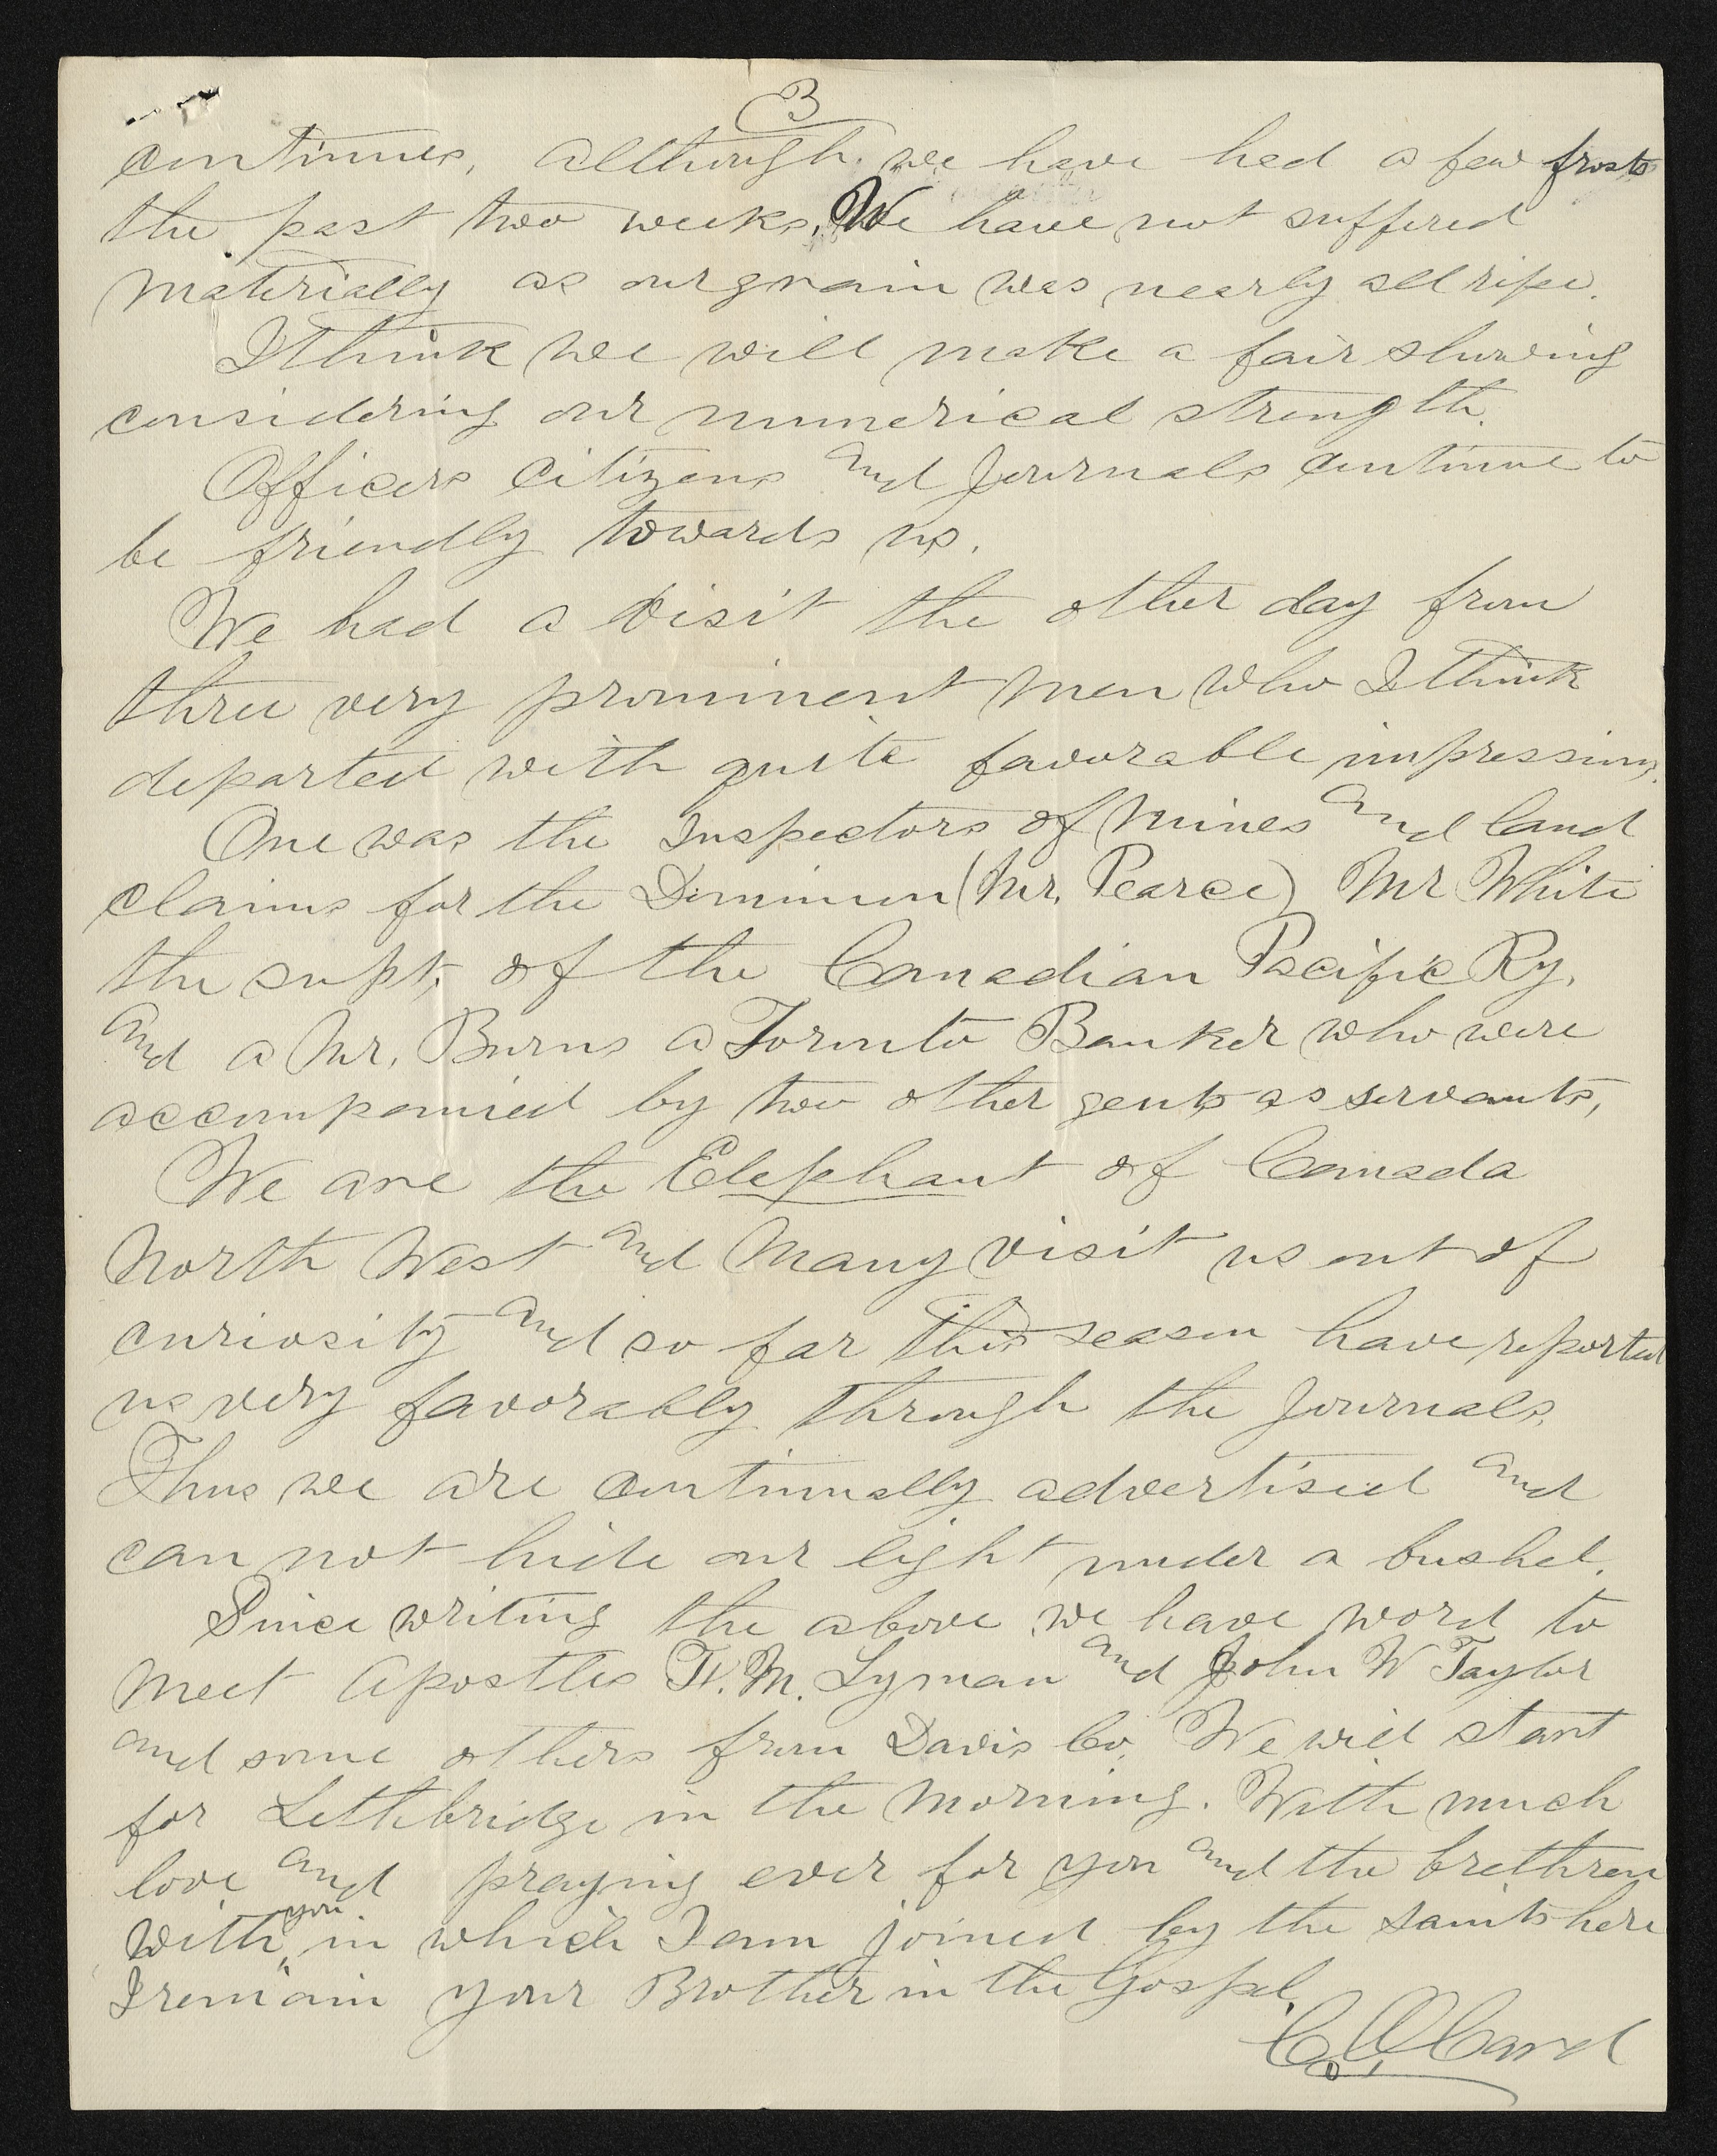 3
continues, although we have had a few frosts
the past two weeks. We have not suffered
materially as our grain was nearly all ripe.
I think we will make a fair showing
considering our numerical strength.
Officers Citizens and Journals continue to
be friendly towards us.
We had a visit the other day from
three very prominent men who I think
departed with quite favorable impressions.
One was the Inspectors of Mines and land
claims for the Dominion (Mr. Pearce) Mr White
the supt, of the Canadian Pacific Ry,
and a Mr. Burns a Toronto Banker who were
accompanied by two other gents as servants,
We are the Elephant of Canada
North West and Many visit us out of
curiosity and so far this season have reported
us very favorably through the Journals.
Thus we are continually advertised and
can not hide our light under a bushel.
Since writing the above we have word to
Meet Apostles F. M. Lyman and John W Taylor
and some others from Davis Co. We will start
for Lethbridge in the Morning. With much
love and praying ever for you and the brethren
with you in which I am joined by the saints here
I remain your Brother in the Gospel,
C. O. Card